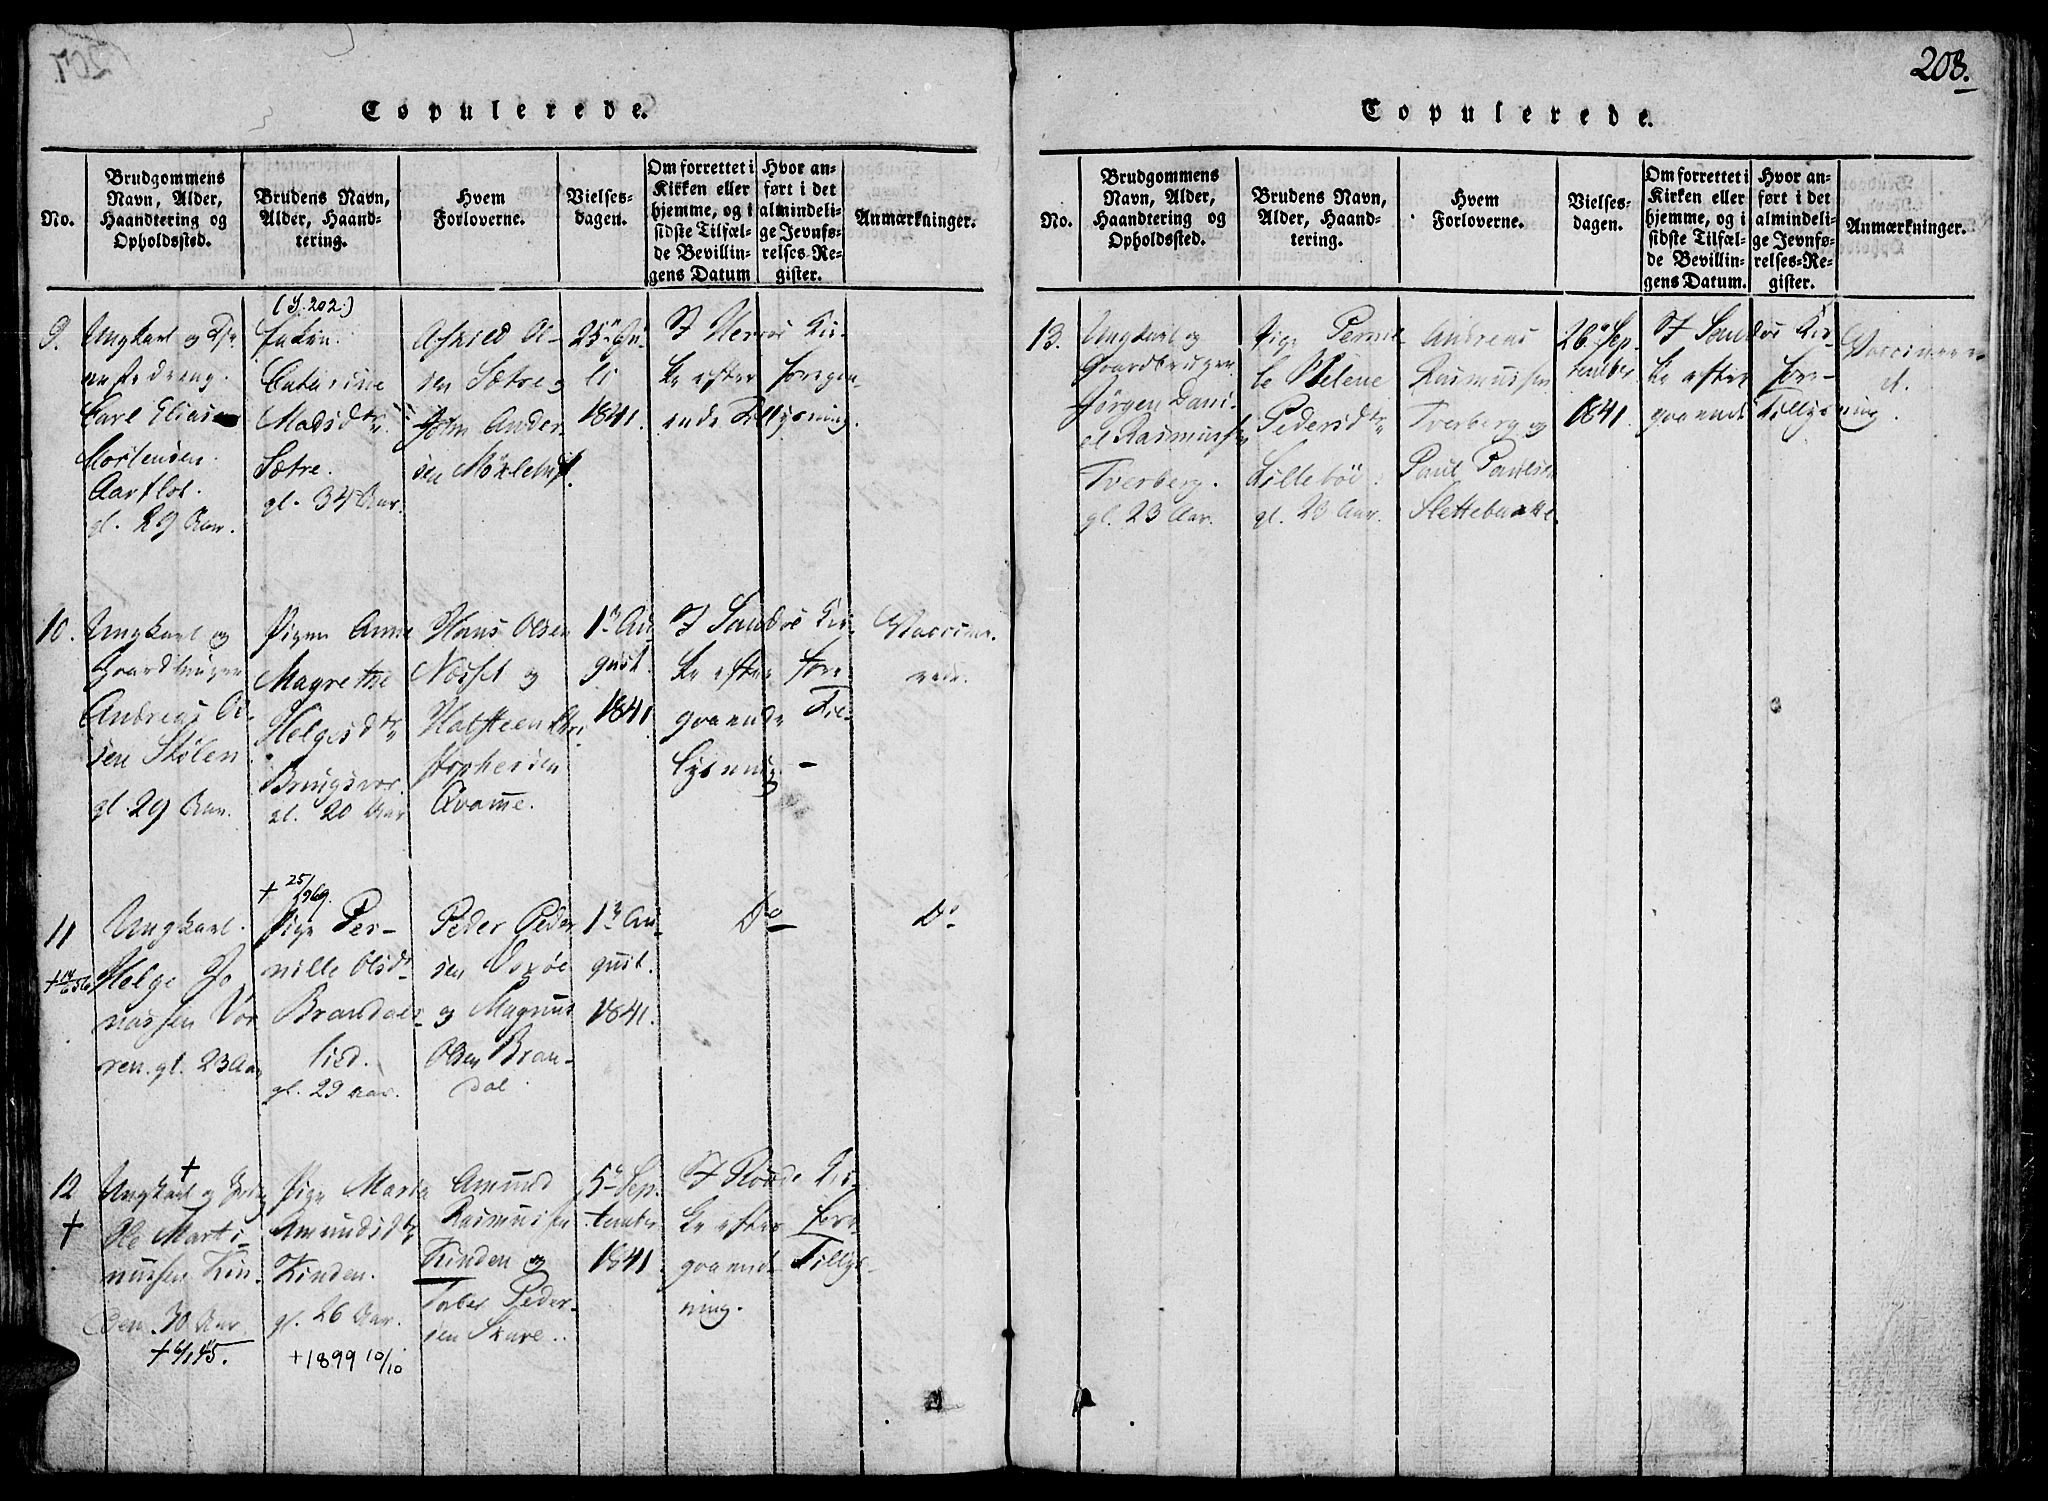 Copulerede.
No.
Brudgommens
Navn, Alder,
Haandtering og
Opholdssted.
Brudens Navn,
Alder, Haand-
tering.
Hvem
Forloverne.
Vielses-
dagen.
Om forrettet i
Kirken eller
hjemme, og i
sidste Tilfæl-
de Bevillin-
gens Datum
Hvor an-
ført i det
almindeli-
ge Jevnfø-
relses-Re-
gister.
Anmærkninger.
9.
Ungkarl og
Carl Elias
Mortensen
Aarflot.
gl. 29 Aar.
(S. 202.)
Enken
Catarine
Madsdtr
Sætre.
gl. 34 Aar.
Ol-
sen Sætre og
John Ander-
sen
25 Ju-
li
1841.
I Herrøe Kir-
ke efter foregaa-
ende Tillysning.
10.
Ungkarl og
Gaardbruger
Andreas Ol-
sen Skolen
gl. 29 Aar.
Pigen Anne
Magrethe
Helgesdtr
Bringsvor.
gl. 20 Aar
Hans Olsen
Næsset og
Halsteen Chri
stophersen
Qvamme.
1 Au-
gust.
1841
I Sandøe Kir-
ke efter fore-
gaaende Til-
lysning -
Vaccine-
rede.
11
+ 14/6 56
Ungkarl
Helge Jo
nassen Vor
ren. gl. 23 Aar
+ 25/9 69.
Pige Per-
nille Olsdtr
Brandals-
lied.
gl. 29 aar.
Peder Peder
sen Voxøe
og Magnus
Olsen Bran-
dal
1 Au-
gust.
1841.
Do
Do
12
+
+
Ungkarl og
Ole Marti-
nussen Kin-
den. 30 Aar
+ 6/1 45.
Pige Maria
Amundsdtr
Kinden.
gl. 26 Aar.
+1899 10/10
Amund
Rasmussen
Kinden og
Tober Peder-
sen Skare.
5 Sep.
tember
1841
I Røvde Kir-
ke efter fore
gaaende Tillys-
ning.
208.
Copulerede.
No.
Brudgommens
Navn, Alder,
Haandtering og
Opholdssted.
Brudens Navn,
Alder, Haand-
tering.
Hvem
Forloverne.
Vielses-
dagen.
Om forrettet i
Kirken eller
hjemme, og i
sidste Tilfæl-
de Bevillin-
gens Datum.
Hvor an-
ført i det
almindeli-
ge Jevnfø-
relses-Re-
gister.
Anmærkninger.
13.
Ungkarl og
Gaardbruger
Jørgen Dani-
el Rasmussen
Tverberg.
gl. 23 Aar.
Pige Pernil-
le Helene
Pedersdtr
Lillebøe.
gl. 23 Aar.
Andreas
Rasmussen
Tverberg og
Paul Paulsen
Slettebakke.
26 Sep-
tember
1841.
I Sandøe Kir-
ke efter fore-
gaaende Tillysning.
Vaccinere-
d.